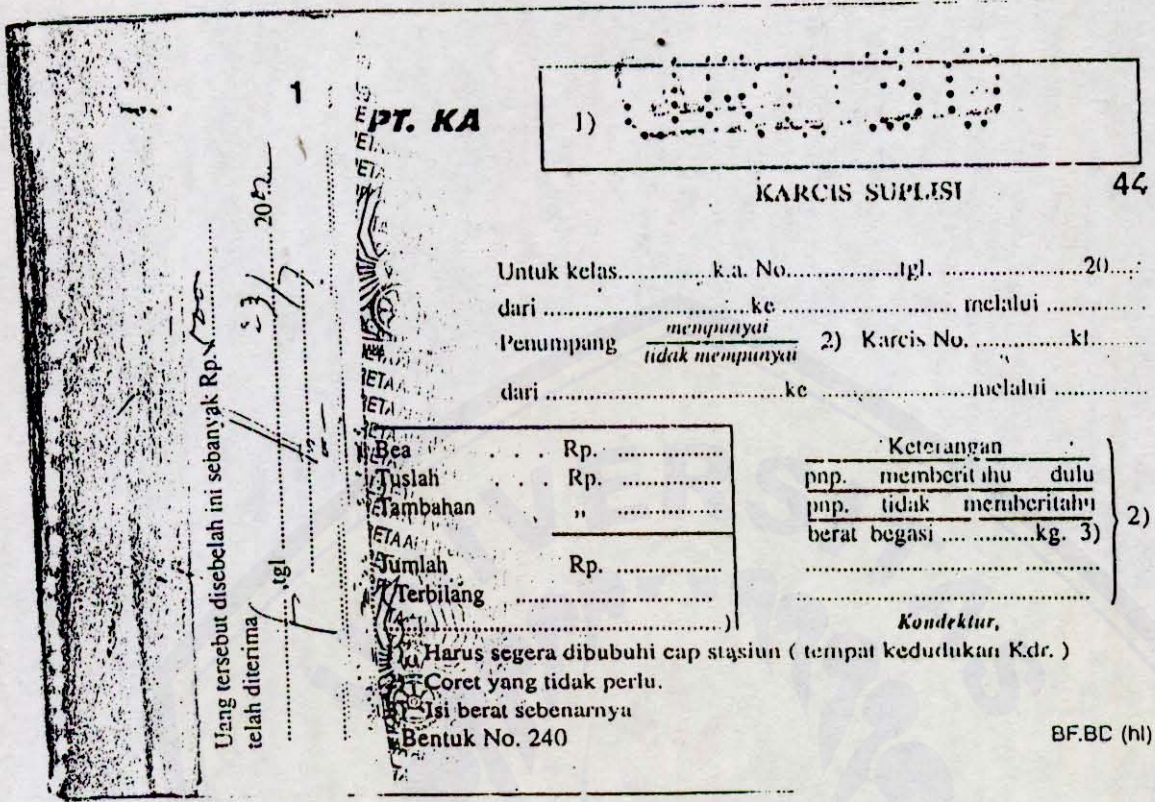 1
Uang tersebut disebelah ini sebanyak Rp.
telah diterima ............, tgl ............ 20
PT. KA
1)
KARCIS SUPLISI
44
Untuk kelas..............k.a. No.................tgl. ......................20.....
dari ..................................ke .............................. melalui ..............
mempunyai
Penumpang 2) Karcis No. ..............kl.......
tidak mempunyai
dari ........................................ke ......................melalui ..............
Bea . . . . Rp. .................
Tuslah . . . Rp. ................
Tambahan . „ .................
Jumlah Rp. .................
Terbilang ................................
(.............................................)
Keterangan
pnp. memberitahu dulu
pnp. tidak memberitahu
berat begasi .... ..........kg. 3)
2)
Kondektur,
1) Harus segera dibubuhi cap stasiun ( tempat kedudukan Kdr. )
2) Coret yang tidak perlu.
3) Isi berat sebenarnya
Bentuk No. 240
BF.BC (hl)